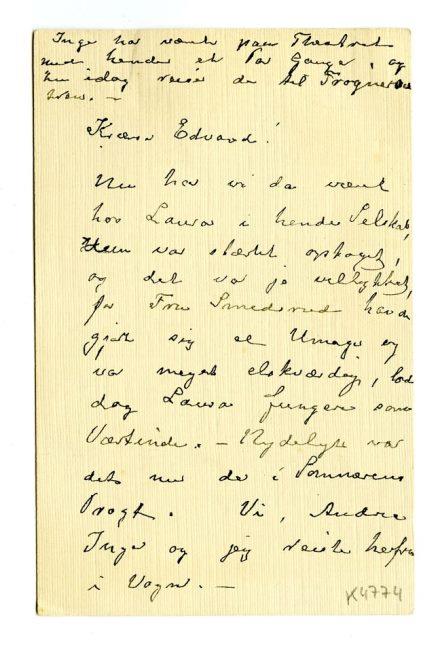 Inge har været paa Theatret
med hende et Par Gange, og
nu idag reise de til Frogner
Kjære Edvard!
Nu har vi da været
hos Laura i hendes Selskab,
Hun var stærkt optaget,
og det var jo vellykket,
for Fru Smedsrud havde
gjort sig al Umage og
var meget elskværdig, lod
dog Laura fungere som
Værtinde. — Nydeligt var
det nu der i Sommerens
Pragt. Vi, Andrea
Inge og jeg reiste herfra
i Vogn. —
K4774